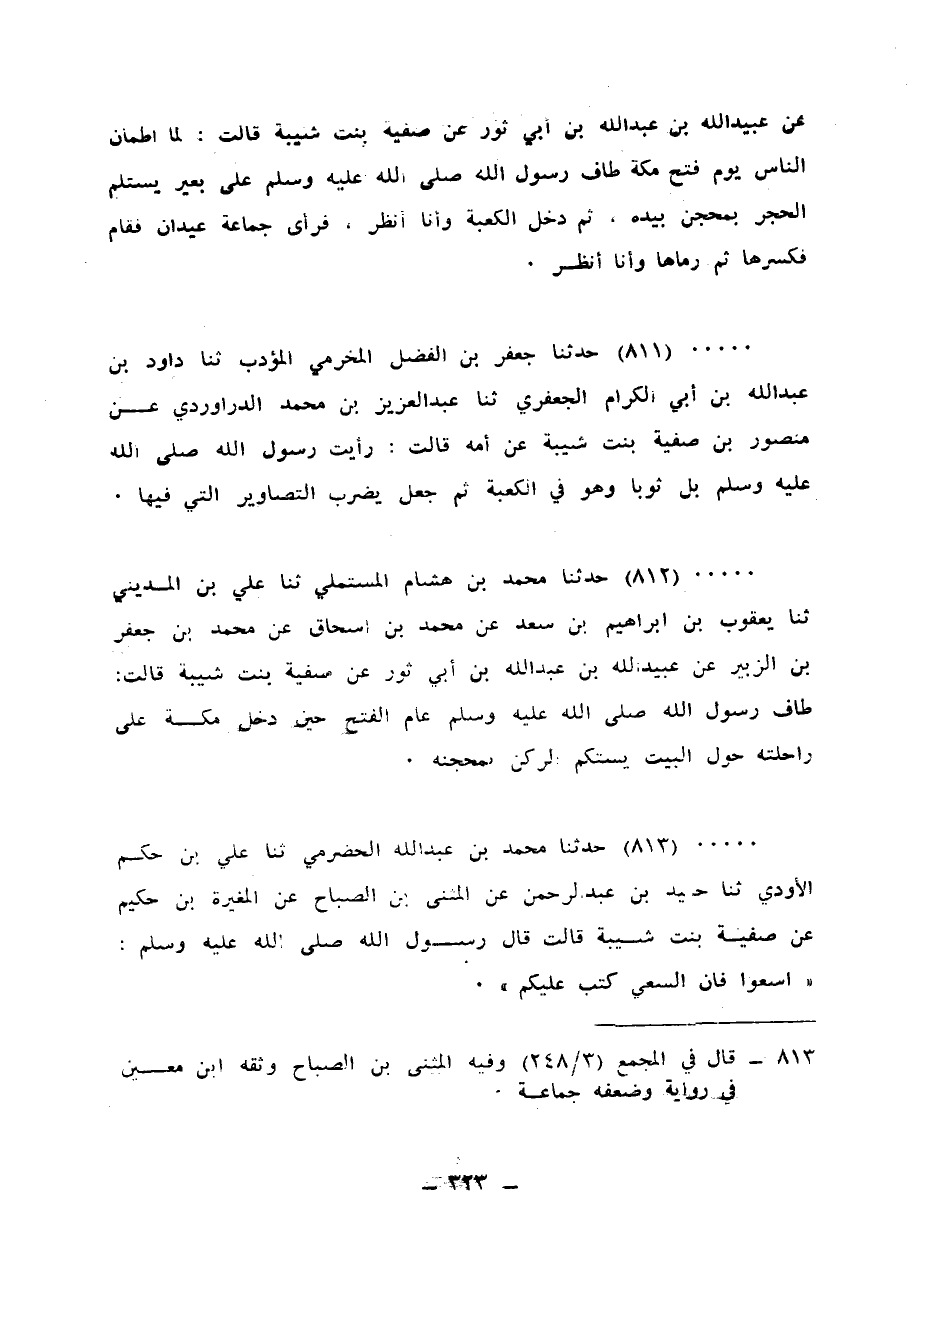 عن عبيدالله بن عبدالله بن أبي ثور عن صفية بنت شيبة قالت : لما اطمأن
الناس يوم فتح مكة طاف رسول الله صلى الله عليه وسلم على بعير يستلم
الحجر بمحجن بيده ، ثم دخل الكعبة وأنا أنظر ، فرأى جماعة عيدان فقام
فكسرها ثم رماها وأنا أنظـــر .
..... (٨١١) حدثنا جعفر بن الفضل المخرمي المؤدب ثنا داود بن
عبدالله بن أبي الكرام الجعفري ثنا عبدالعزيز بن محمد الدراوردي عـــن
منصور بن صفية بنت شيبة عن أمه قالت : رأيت رسول الله صلى الله
عليه وسلم بل ثوبا وهو في الكعبة ثم جعل يضرب التصاوير التي فيها .
..... (٨١٢) حدثنا محمد بن هشام المستملي ثنا علي بن المـــديني
ثنا يعقوب بن ابراهيم بن سعد عن محمد بن اسحاق عن محمد بن جعفر
بن الزبير عن عبيدالله بن عبدالله بن أبي ثور عن صفية بنت شيبة قالت:
طاف رسول الله صلى الله عليه وسلم عام الفتح حين دخل مكـــة على
راحلته حول البيت يستلم الركن بمحجنه .
..... (٨١٣) حدثنا محمد بن عبدالله الحضرمي ثنا علي بن حكـــم
الأودي ثنا حميد بن عبدالرحمن عن المثنى بن الصباح عن المغيرة بن حكيم
عن صفيـــة بنت شـــيبة قالت قال رســـول الله صلى الله عليه وسلم :
« اسعوا فان السعي كتب عليكم » .
٨١٣ ــ قال في المجمع (٢٤٨/٣) وفيه المثنى بن الصباح وثقه ابن معـــين
في رواية وضعفه جماعـــة .
ــ ٣٢٣ ــ